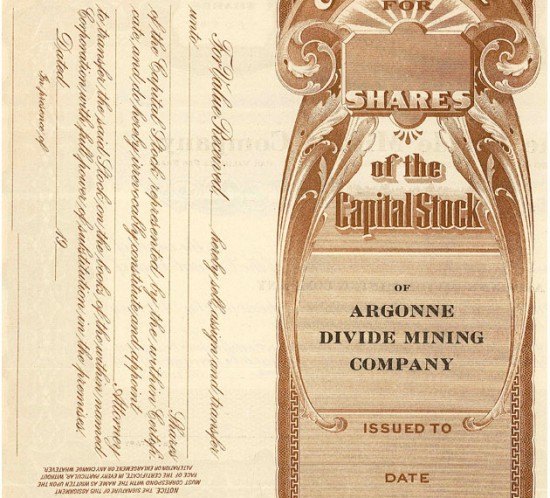 FOR
SHARES
of the
Capital Stock
OF
ARGONNE
DIVIDE MINING
COMPANY
ISSUED TO
DATE
For Value Received hereby sell, assign and transfer
unto
Shares
of the Capital Stock represented by the within Certifi-
cate, and do hereby irrevocably constitute and appoint
Attorney
to transfer the said Stock on the books of the within named
Corporation with full power of substitution in the premises.
Dated 19
In presence of
NOTICE: THE SIGNATURE OF THIS ASSIGNMENT
MUST CORRESPOND WITH THE NAME AS WRITTEN UPON THE
FACE OF THE CERTIFICATE, IN EVERY PARTICULAR, WITHOUT
ALTERATION OR ENLARGEMENT OR ANY CHANGE WHATEVER.